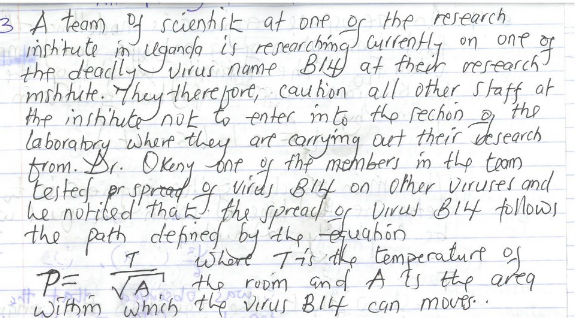 3 A team of scientist at one of the research
institute in Uganda is researching currently on one of
the deadly virus name B14 at their research
institute. They therefore, caution all other staff at
the institute not to enter into the section of the
laboratory where they are carrying out their research
from. Dr. Okeny one of the members in the team
tested or spread of virus B14 on other viruses and
he noticed that the spread of virus B14 follows
the path defined by the equation
P = T/√A where T is the temperature of
the room and A is the area
within which the virus B14 can move..